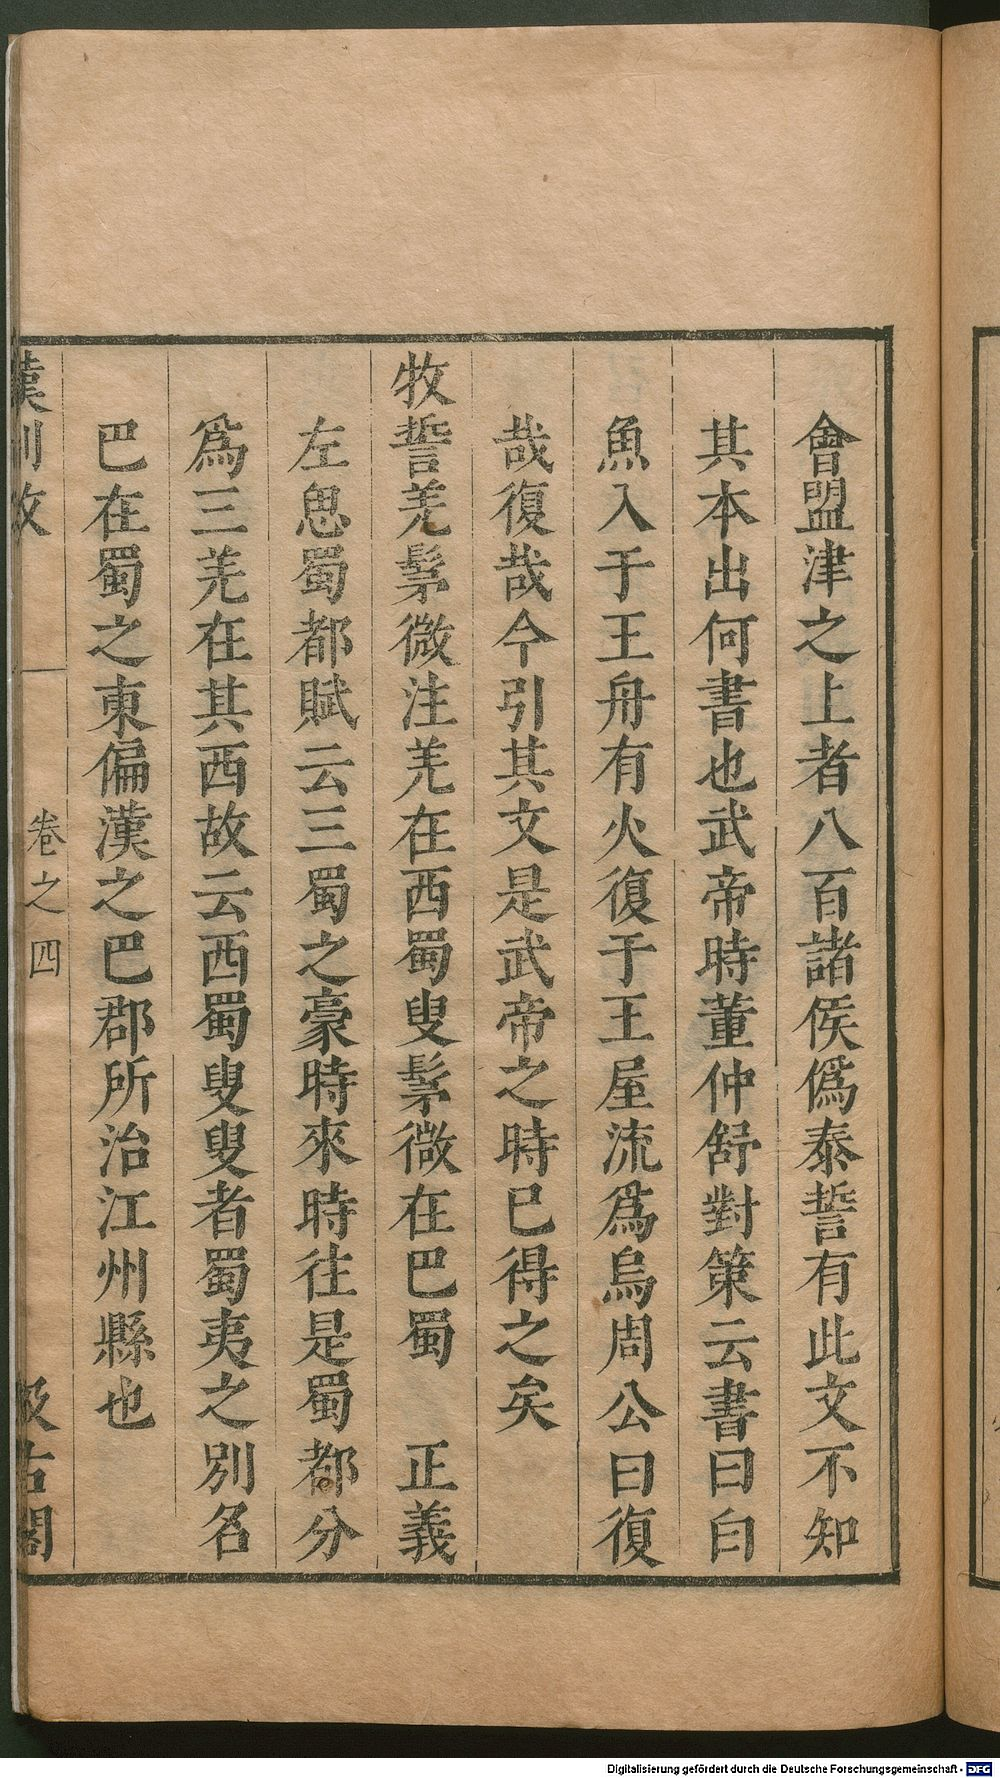 會盟津之上者八百諸侯僞泰誓有此文不知
其本出何書也武帝時董仲舒對策云書曰白
魚入于王舟有火復于王屋流爲烏周公曰復
哉復哉今引其文是武帝之時已得之矣
牧誓羌髳微注羌在西蜀叟髳微在巴蜀　正義
左思蜀都賦云三蜀之豪時來時往是蜀都分
爲三羌在其西故云西蜀叟叟者蜀夷之別名
巴在蜀之東偏漢之巴郡所治江州縣也
漢制攷
卷之四
汲古閣
Digitalisierung gefördert durch die Deutsche Forschungsgemeinschaft - DFG